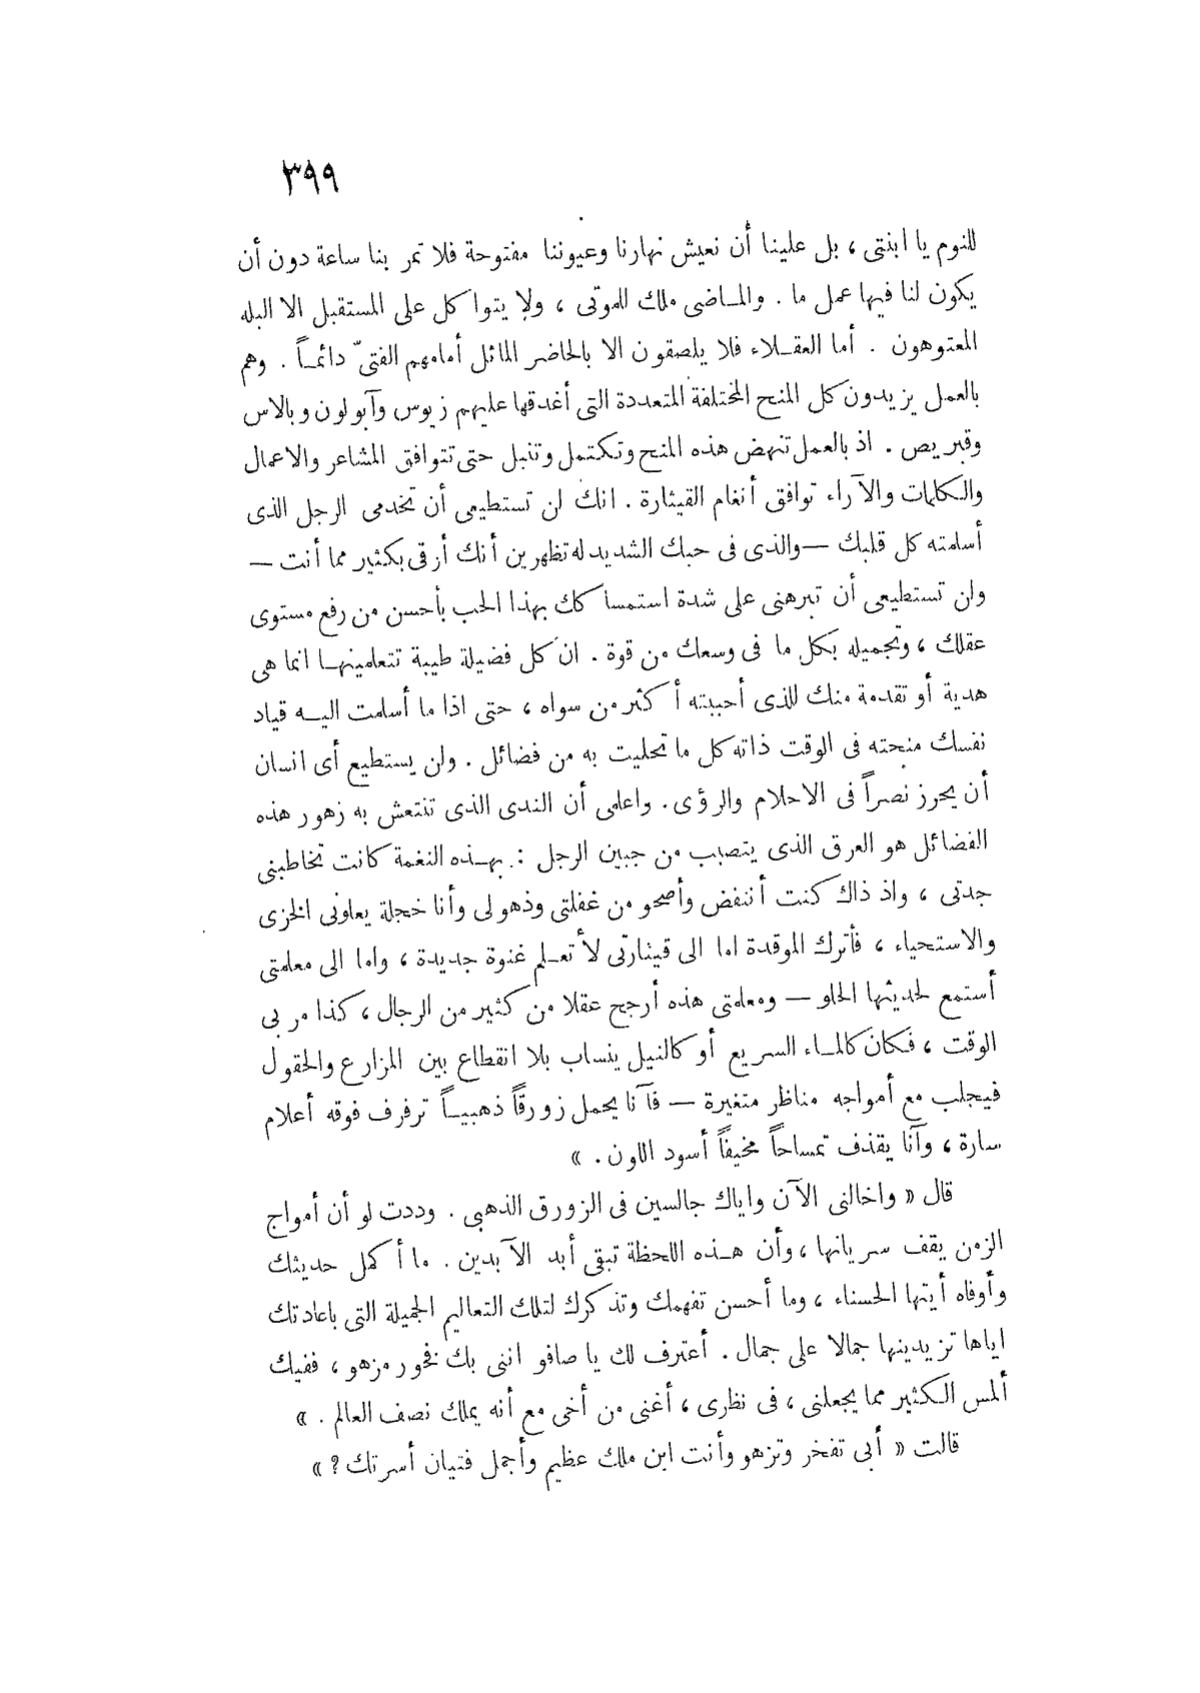 ٣٩٩
للنوم يا ابنتى ، بل علينا أن نعيش نهارنا وعيوننا مفتوحة فلا تمر بنا ساعة دون أن
يكون لنا فيها عمل ما . والمـاضى ملك للموتى ، ولا يتواكل على المستقبل الا البله
المعتوهون . أما العقـلاء فلا يلصقون الا بالحاضر الماثل أمامهم الفتىّ دائمـاً . وهم
بالعمل يزيدون كل المنح المختلفة المتعددة التى أغدقها عليهم زيوس وآبولون وبالاس
وقبريص . اذ بالعمل تنهض هذه المنح وتكتمل وتنبل حتى تتوافق المشاعر والاعمال
والكلمات والآراء توافق أنغام القيثارة . انك لن تستطيعى أن تخدمى الرجل الذى
أسلمته كل قلبك — والذى فى حبك الشديد له تظهرين أنك أرقى بكثير مما أنت —
ولن تستطيعى أن تبرهنى على شدة استمساكك بهذا الحب بأحسن من رفع مستوى
عقلك ، وتجميله بكل ما فى وسعك من قوة . ان كل فضيلة طيبة تتعلمينهـا انما هى
هدية أو تقدمة منك للذى أحببته أكثر من سواه ، حتى اذا ما أسلمت اليـه قياد
نفسك منحته فى الوقت ذاته كل ما تحليت به من فضائل . ولن يستطيع أى انسان
أن يحرز نصراً فى الاحلام والرؤى . واعلمى أن الندى الذى تنتعش به زهور هذه
الفضائل هو العرق الذى يتصبب من جبين الرجل : بهـذه النغمة كانت تخاطبنى
جدتى ، واذ ذاك كنت أنتفض وأصحو من غفلتى وذهولى وأنا خجلة يعلونى الخزى
والاستحياء ، فأترك الموقدة اما الى قيثارتى لأتعـلم غنوة جديدة ، واما الى معلمتى
أستمع لحديثها الحلو — ومعلمتى هذه أرجح عقلا من كثير من الرجال ، كذا مر بى
الوقت ، فكان كالمـاء السريع أو كالنيل ينساب بلا انقطاع بين المزارع والحقول
فيجلب مع أمواجه مناظر متغيرة — فآنا يحمل زورقاً ذهبيـاً ترفرف فوقه أعلام
سارة ، وآنا يقذف تمساحاً مخيفاً أسود اللون . »
قال « واخالنى الآن واياك جالسين فى الزورق الذهبى . وددت لو أن أمواج
الزمن يقف سريانها ، وأن هـذه اللحظة تبقى أبد الآبدين . ما أكمل حديثك
وأوفاه أيتها الحسناء ، وما أحسن تفهمك وتذكرك لتلك التعاليم الجميلة التى باعادتك
اياها تزيدينها جمالا على جمال . أعترف لك يا صافو اننى بك فخور مزهو ، ففيك
ألمس الكثير مما يجعلنى ، فى نظرى ، أغنى من أخى مع أنه يملك نصف العالم . »
قالت « أبى تفخر وتزهو وأنت ابن ملك عظيم وأجمل فتيان أسرتك ? »